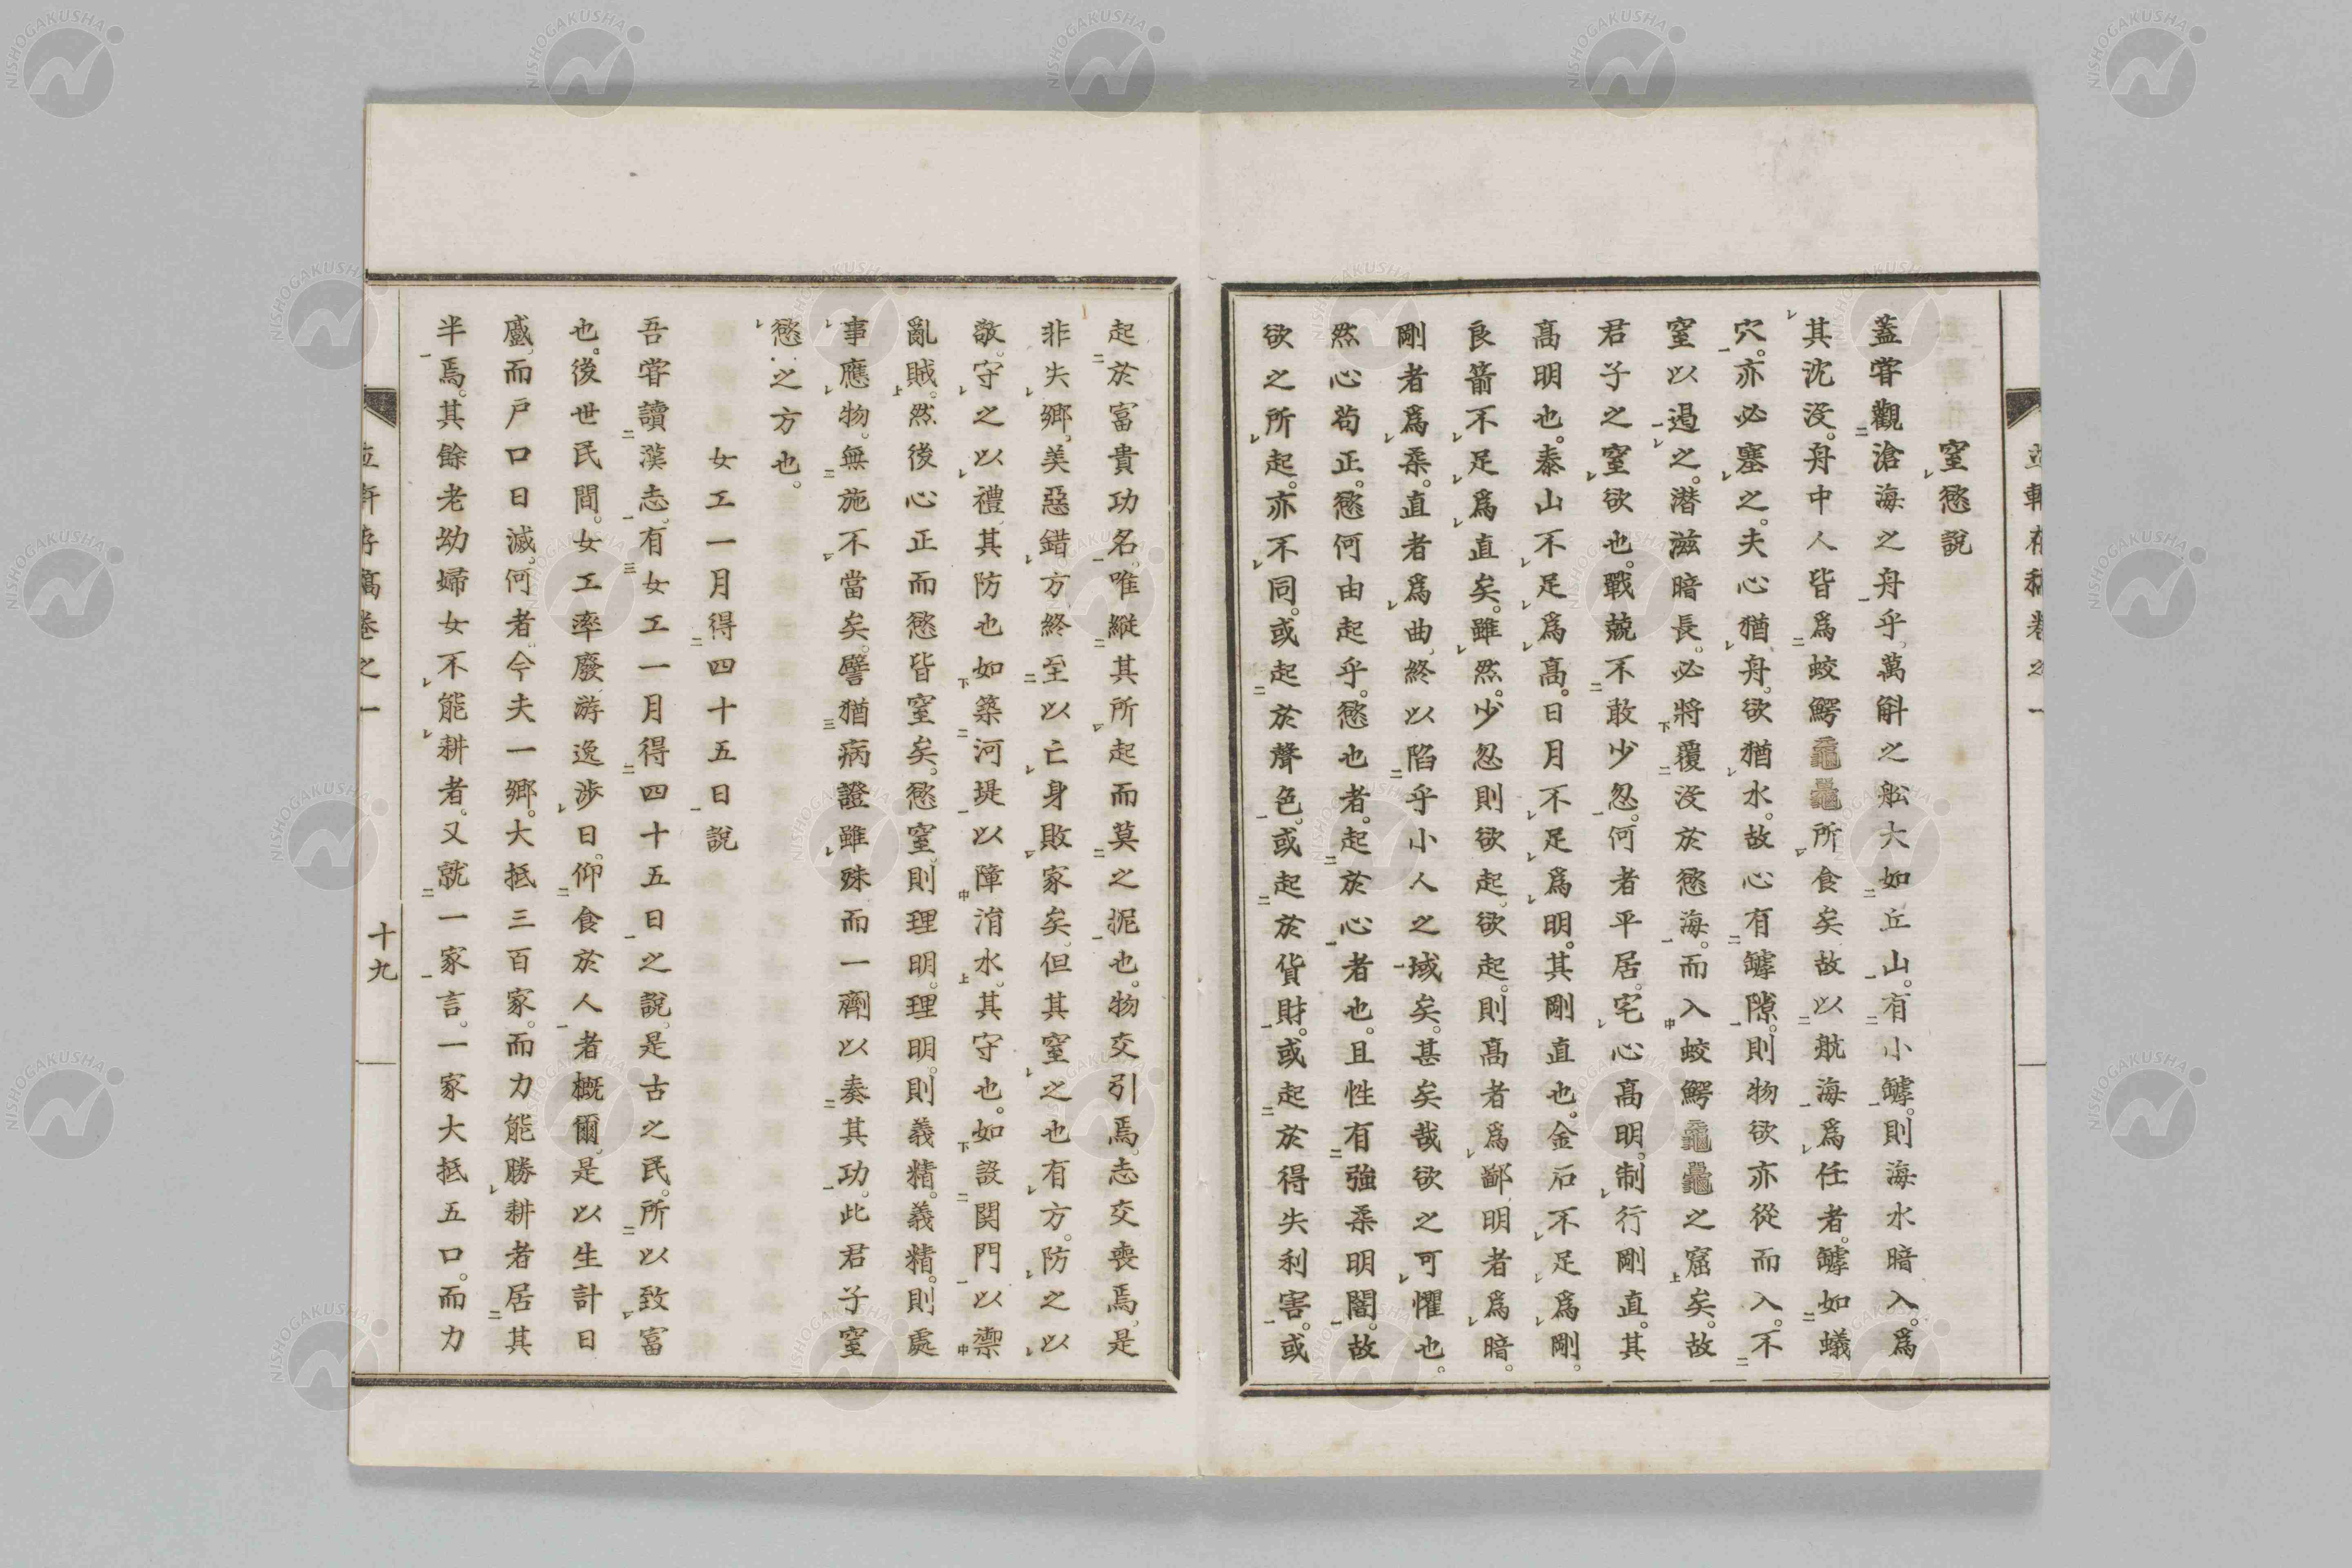 窒慾說
蓋甞觀滄海之舟乎。萬斛之舩大如丘山。有小罅。則海水暗入。爲
其沈沒。舟中人皆爲蛟鰐黿鼉所食矣故以航海爲任者。罅如蟻
穴。亦必塞之。夫心猶舟。欲猶水。故心有罅隙。則物欲亦從而入。不
窒以遏之。潜滋暗長。必將覆沒於慾海。而入蛟鰐黿鼉之窟矣。故
君子之窒欲也。戰兢不敢少忽。何者平居。宅心高明。制行剛直。其
高明也。泰山不足爲高。日月不足爲明。其剛直也。金石不足爲剛。
良箭不足爲直矣。雖然。少忽則欲起。欲起。則高者爲鄙明者爲暗。
剛者爲柔。直者爲曲。終以陷乎小人之域矣。甚矣哉欲之可懼也。
然心苟正。慾何由起乎。慾也者。起於心者也。且性有強柔明闇。故
欲之所起。亦不同。或起於聲色。或起於貨財。或起於得失利害。或
起於富貴功名。唯縱其所起而莫之抳也。物交引焉。志交喪焉。是
非失鄉。美惡錯方。終至以亡身敗家矣。但其窒之也有方。防之以
敬。守之以禮。其防也如築河堤以障洧水。其守也。如設関門以禦
亂賊。然後心正而慾皆窒矣。慾窒。則理明。理明。則義精。義精。則處
事應物。無施不當矣。譬猶病證雖殊而一劑以奏其功。此君子窒
慾之方也。
女工一月得四十五日說
吾甞讀漢志。有女工一月得四十五日之說。是古之民。所以致富
也。後世民間。女工率廢。游逸涉日。仰食於人者概爾。是以生計日
蹙。而戶口日滅。何者。今夫一鄉。大抵三百家。而力能勝耕者居其
半焉。其餘老幼婦女不能耕者。又就一家言。一家大抵五口。而力
十九